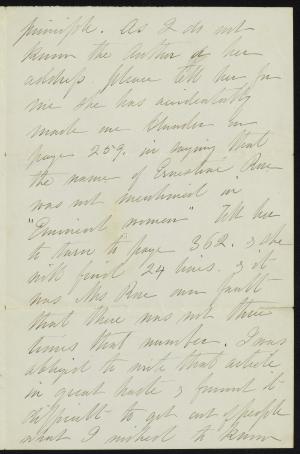 principle. As I do not
know the Author or her
address please tell her for
me she has accidentally
made one blunder on
page 259. in saying that
the name of Ernestine Rose
was not mentioned in
"Eminent women" Tell her
to turn to page 362. & she
will find 24 lines. & it
was Mrs Rose own fault
that there was not three
times that number. I was
obliged to write that article
in great haste & found it
difficult to get out of people
what I wished to know